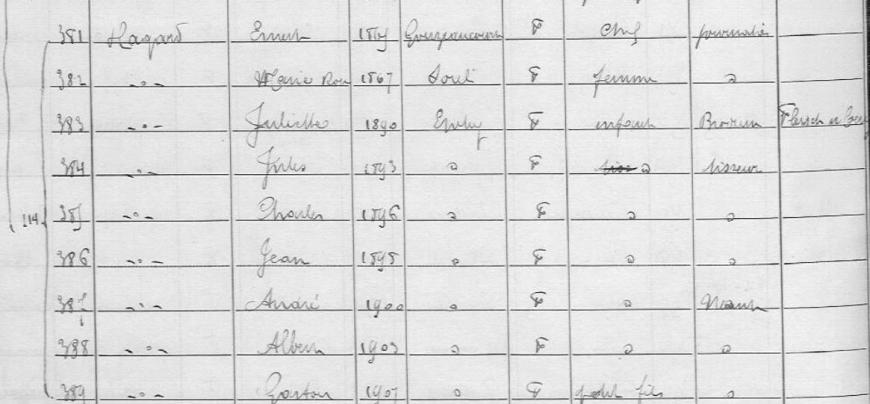 381 Hagard Ernest Gouzeaucourt F Chef journalier
382 -o- Marie Rose 1867 F femme o
383 -o- Juliette 1890 Epehy F enfant
384 -o- Jules 1893 o F o tisseur
114 385 -o- Charles 1896 o F o o
386 -o- Jean o F o o
387 -o- André 1900 o F o Néant
388 -o- Albert 1903 o F o o
389 -o- Gaston 1907 o F petit fils o